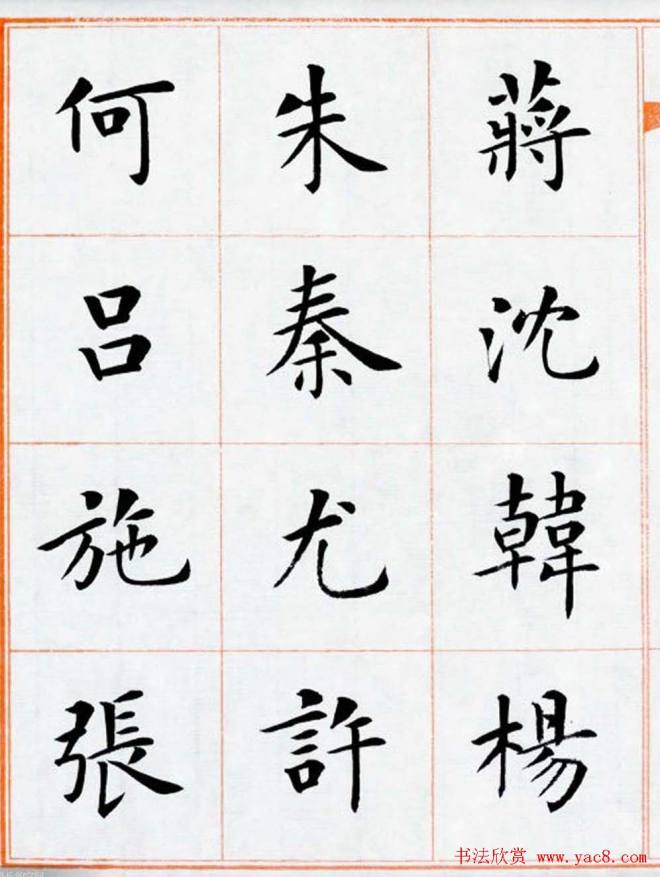 蔣沈韓楊
朱秦尤許
何呂施張
书法欣赏 www.yac8.com